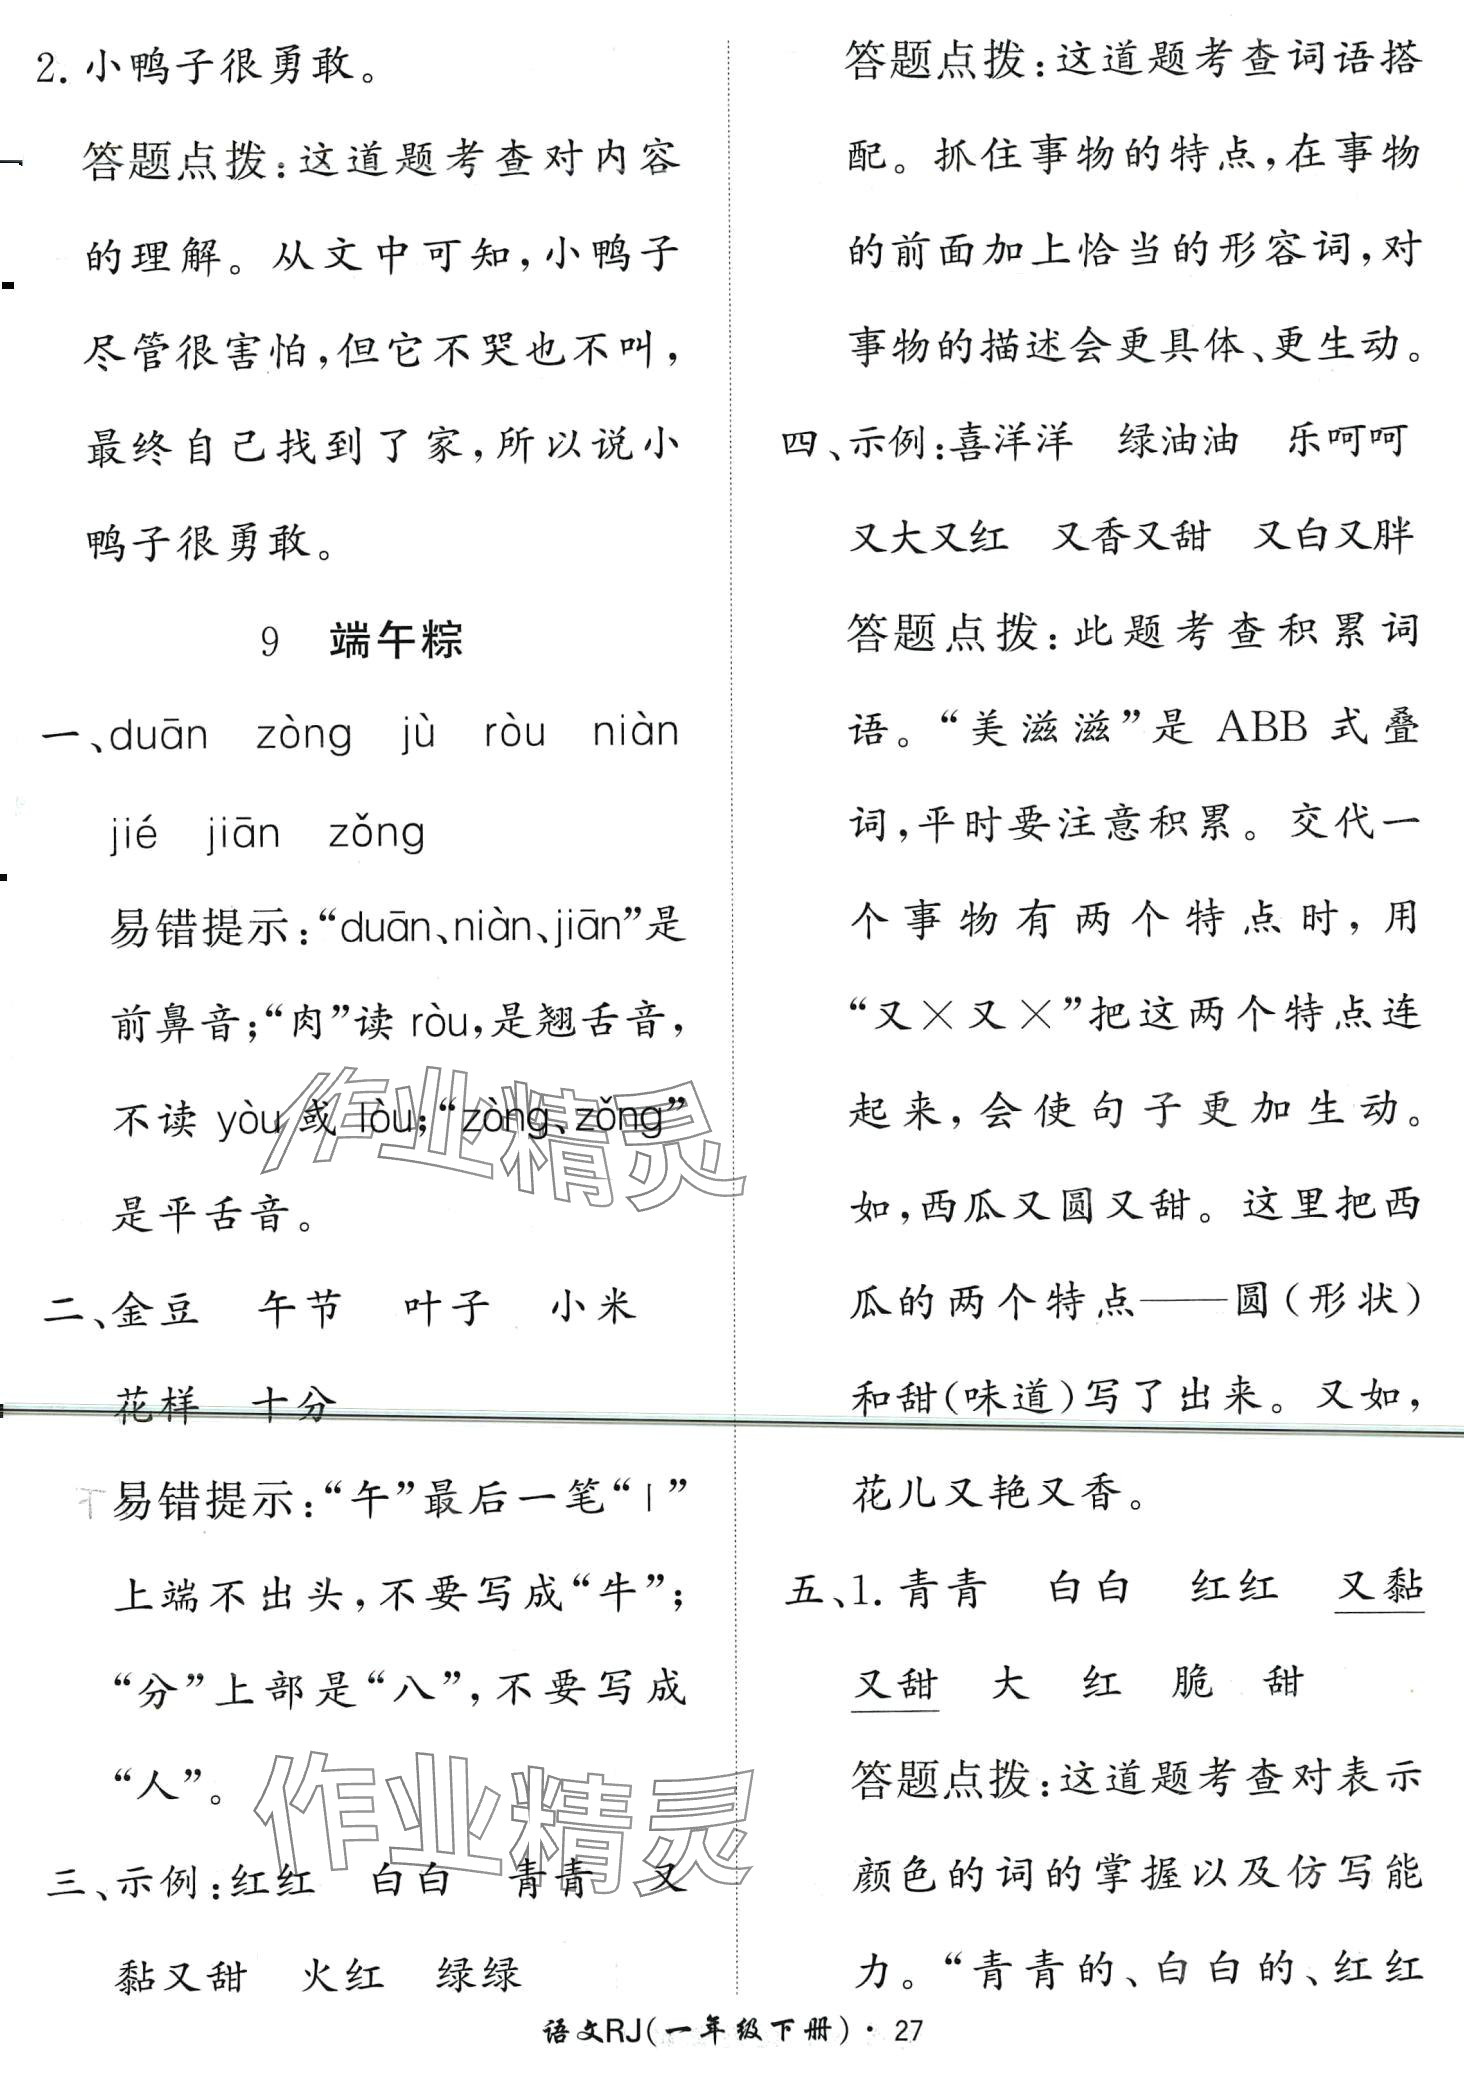 2. 小鸭子很勇敢。
答题点拨：这道题考查对内容
的理解。从文中可知，小鸭子
尽管很害怕，但它不哭也不叫，
最终自己找到了家，所以说小
鸭子很勇敢。
9 端午粽
一、duān zòng jù ròu niàn
jié jiān zǒng
易错提示：“duān、niàn、jiān”是
前鼻音；“肉”读 ròu，是翘舌音，
不读 yòu 或 lòu；“zòng、zǒng”
是平舌音。
二、金豆 午节 叶子 小米
花样 十分
易错提示：“午”最后一笔“丨”
上端不出头，不要写成“牛”；
“分”上部是“八”，不要写成
“人”。
三、示例：红红 白白 青青 又
黏又甜 火红 绿绿
答题点拨：这道题考查词语搭
配。抓住事物的特点，在事物
的前面加上恰当的形容词，对
事物的描述会更具体、更生动。
四、示例：喜洋洋 绿油油 乐呵呵
又大又红 又香又甜 又白又胖
答题点拨：此题考查积累词
语。“美滋滋”是 ABB 式叠
词，平时要注意积累。交代一
个事物有两个特点时，用
“又×又×”把这两个特点连
起来，会使句子更加生动。
如，西瓜又圆又甜。这里把西
瓜的两个特点——圆（形状）
和甜（味道）写了出来。又如，
花儿又艳又香。
五、1. 青青 白白 红红 又黏
又甜 大 红 脆 甜
答题点拨：这道题考查对表示
颜色的词的掌握以及仿写能
力。“青青的、白白的、红红
语文RJ(一年级下册)·27
作业精灵
作业精灵